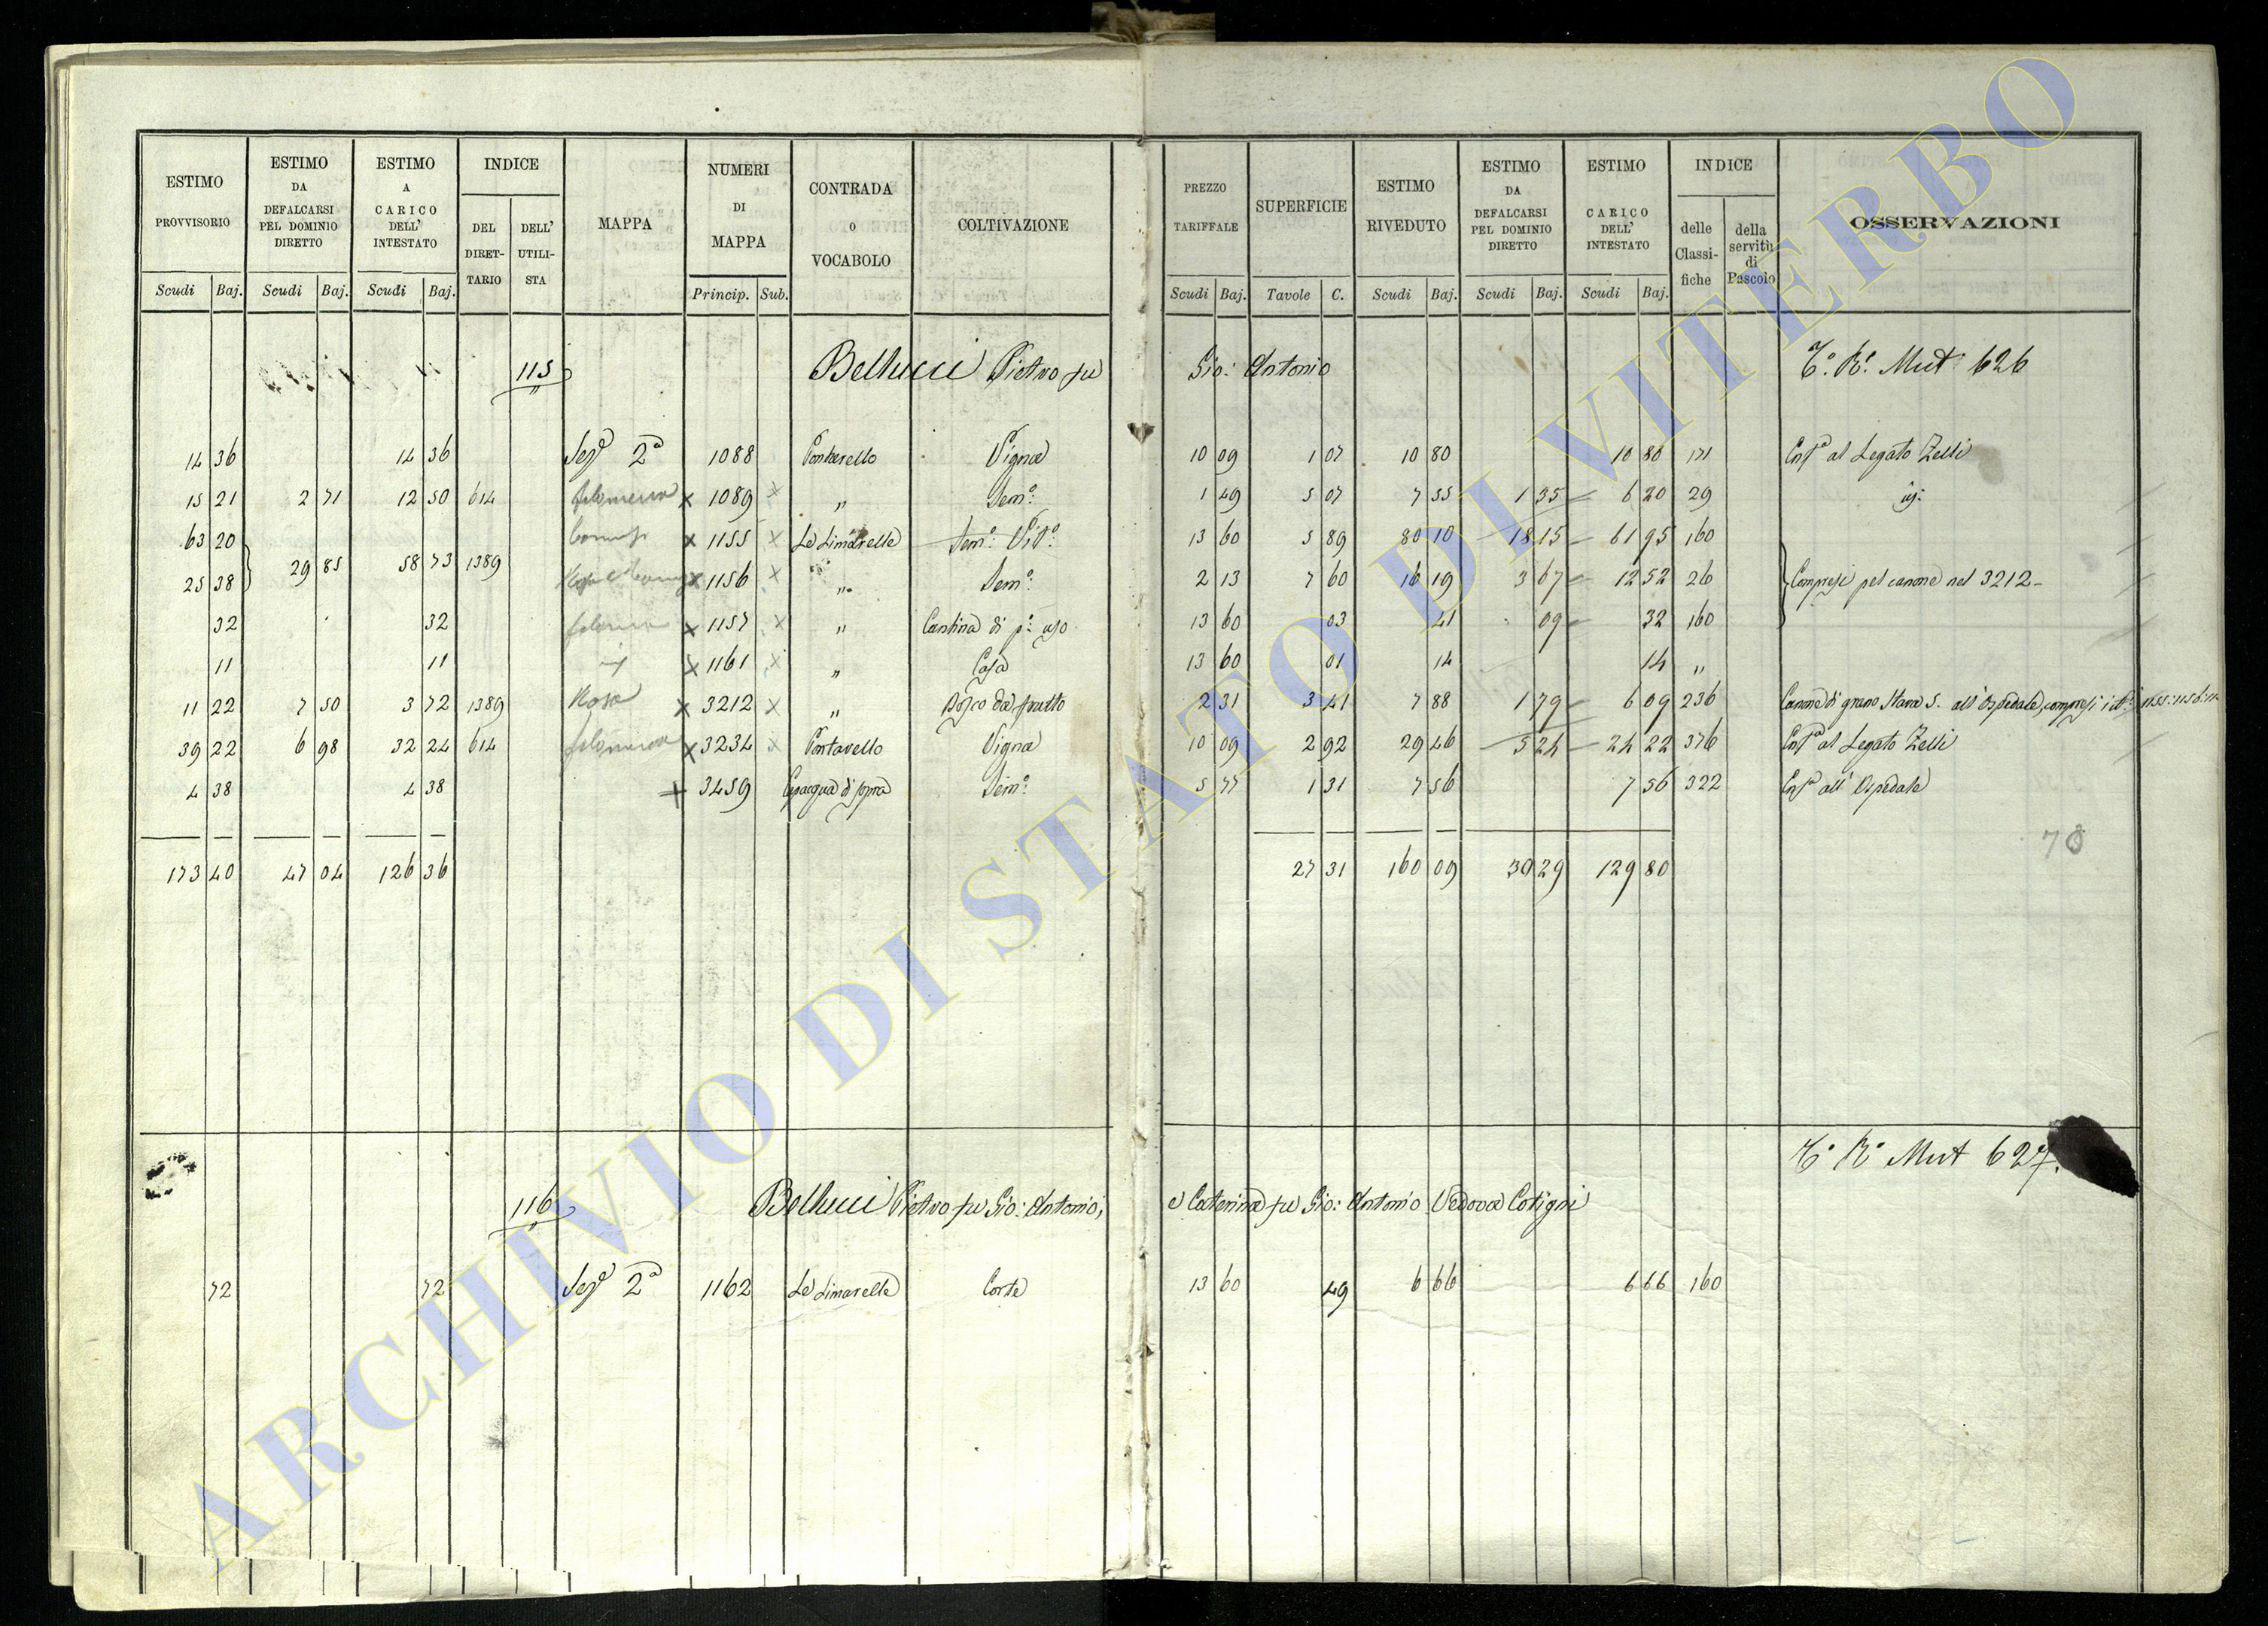 ESTIMO PROVVISORIO | ESTIMO DA DEFALCARSI PEL DOMINIO DIRETTO | ESTIMO A CARICO DELL' INTESTATO | INDICE | MAPPA | NUMERI DI MAPPA | CONTRADA O VOCABOLO | COLTIVAZIONE | PREZZO TARIFFALE | SUPERFICIE | ESTIMO RIVEDUTO | ESTIMO DA DEFALCARSI PEL DOMINIO DIRETTO | ESTIMO CARICO DELL' INTESTATO | INDICE | OSSERVAZIONI
DEL DIRETTARIO | DELL' UTILISTA | delle Classifiche | della servitù di Pascolo
Scudi | Baj. | Scudi | Baj. | Scudi | Baj. | Princip. | Sub. | Scudi | Baj. | Tavole | C. | Scudi | Baj. | Scudi | Baj. | Scudi | Baj.
115 Bellucci Pietro fu Gio: Antonio Mut 626
14 36 | 14 36 | Sez^e 2^a | 1088 | Pontarello | Vigna | 10 09 | 1 07 | 10 80 | 10 80 | 171 | al Legato Zelli
15 21 | 2 71 | 12 50 | 614 | filomena x | 1089 x | " | Sem^o: | 1 49 | 5 07 | 7 55 | 1 35 | 6 20 | 29
63 20 | x 1155 x | Le Limarelle | Sem^o: Vit^o: | 13 60 | 5 89 | 80 10 | 18 15 | 61 95 | 160
29 85 | 58 73 | 1389
25 38 | x 1156 x | " | Sem^o: | 2 13 | 7 60 | 16 19 | 3 67 | 12 52 | 26 | Compresi pel canone nel 3212
32 | 32 | filomena x | 1157 x | " | Cantina di p^o: uso | 13 60 | 03 | 41 | 09 | 32 | 160
11 | 11 | x 1161 x | " | Casa | 13 60 | 01 | 14 | 14 | "
11 22 | 7 50 | 3 72 | 1389 | Rosa x | 3212 x | " | Bosco da frutto | 2 31 | 3 41 | 7 88 | 1 79 | 6 09 | 236 | Canone di grano Stara 5. all' Ospedale, compresi i
39 22 | 6 98 | 32 24 | 614 | filomena x | 3234 x | Pontarello | Vigna | 10 09 | 2 92 | 29 46 | 5 24 | 24 22 | 376 | al Legato Zelli
4 38 | 4 38 | x 3459 | Capacqua di sopra | Sem^o: | 5 77 | 1 31 | 7 56 | 7 56 | 322 | all' Ospedale
78
173 40 | 47 04 | 126 36 | 27 31 | 160 09 | 30 29 | 129 80
Mut 627.
116 Bellucci Pietro fu Gio: Antonio, e Caterina fu Gio: Antonio Vedova Cotigni
72 | 72 | Sez^e 2^a | 1162 | Le Limarelle | Corte | 13 60 | 49 | 6 66 | 6 66 | 160
ARCHIVIO DI STATO DI VITERBO